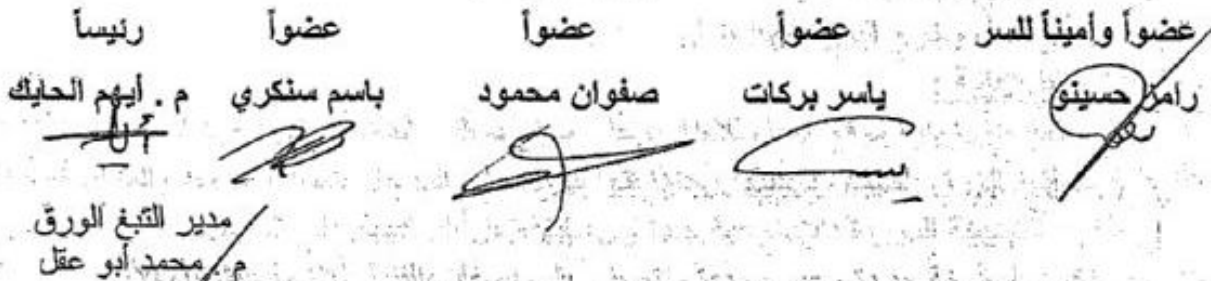 عضواً وأميناً للسر عضواً عضواً عضواً رئيساً
رامز حسينو ياسر بركات صفوان محمود باسم سنكري م . أيهم الحايك
مدير التبغ الورق
م . محمد أبو عقل